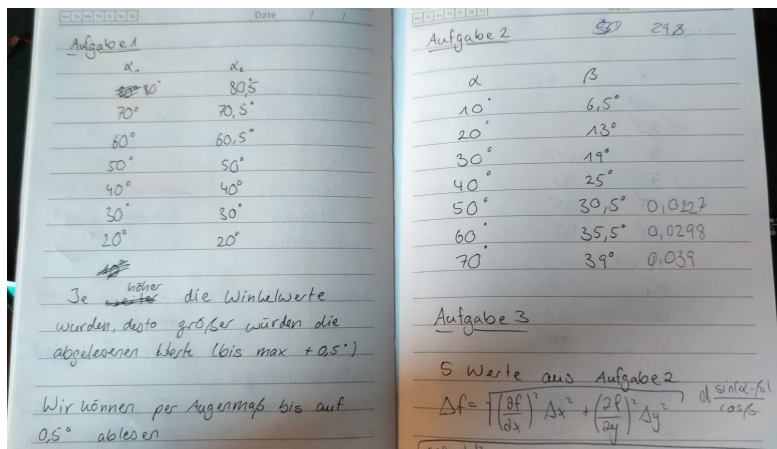 Date / /
Aufgabe 1
α₁ α₂
80° 80,5°
70° 70,5°
60° 60,5°
50° 50°
40° 40°
30° 30°
20° 20°
höher
Je die Winkelwerte
wurden, desto größer würden die
abgelesenen Werte (bis max +0,5°)
Wir können per Augenmaß bis auf
0,5° ablesen
Aufgabe 2 298
α β
10° 6,5°
20° 13°
30° 19°
40° 25°
50° 30,5° 0,0227
60° 35,5° 0,0298
70° 39° 0,039
Aufgabe 3
5 Werte aus Aufgabe 2
Δf = √((∂f/∂x)² Δx² + (∂f/∂y)² Δy²) d sin(α-β)/cosβ